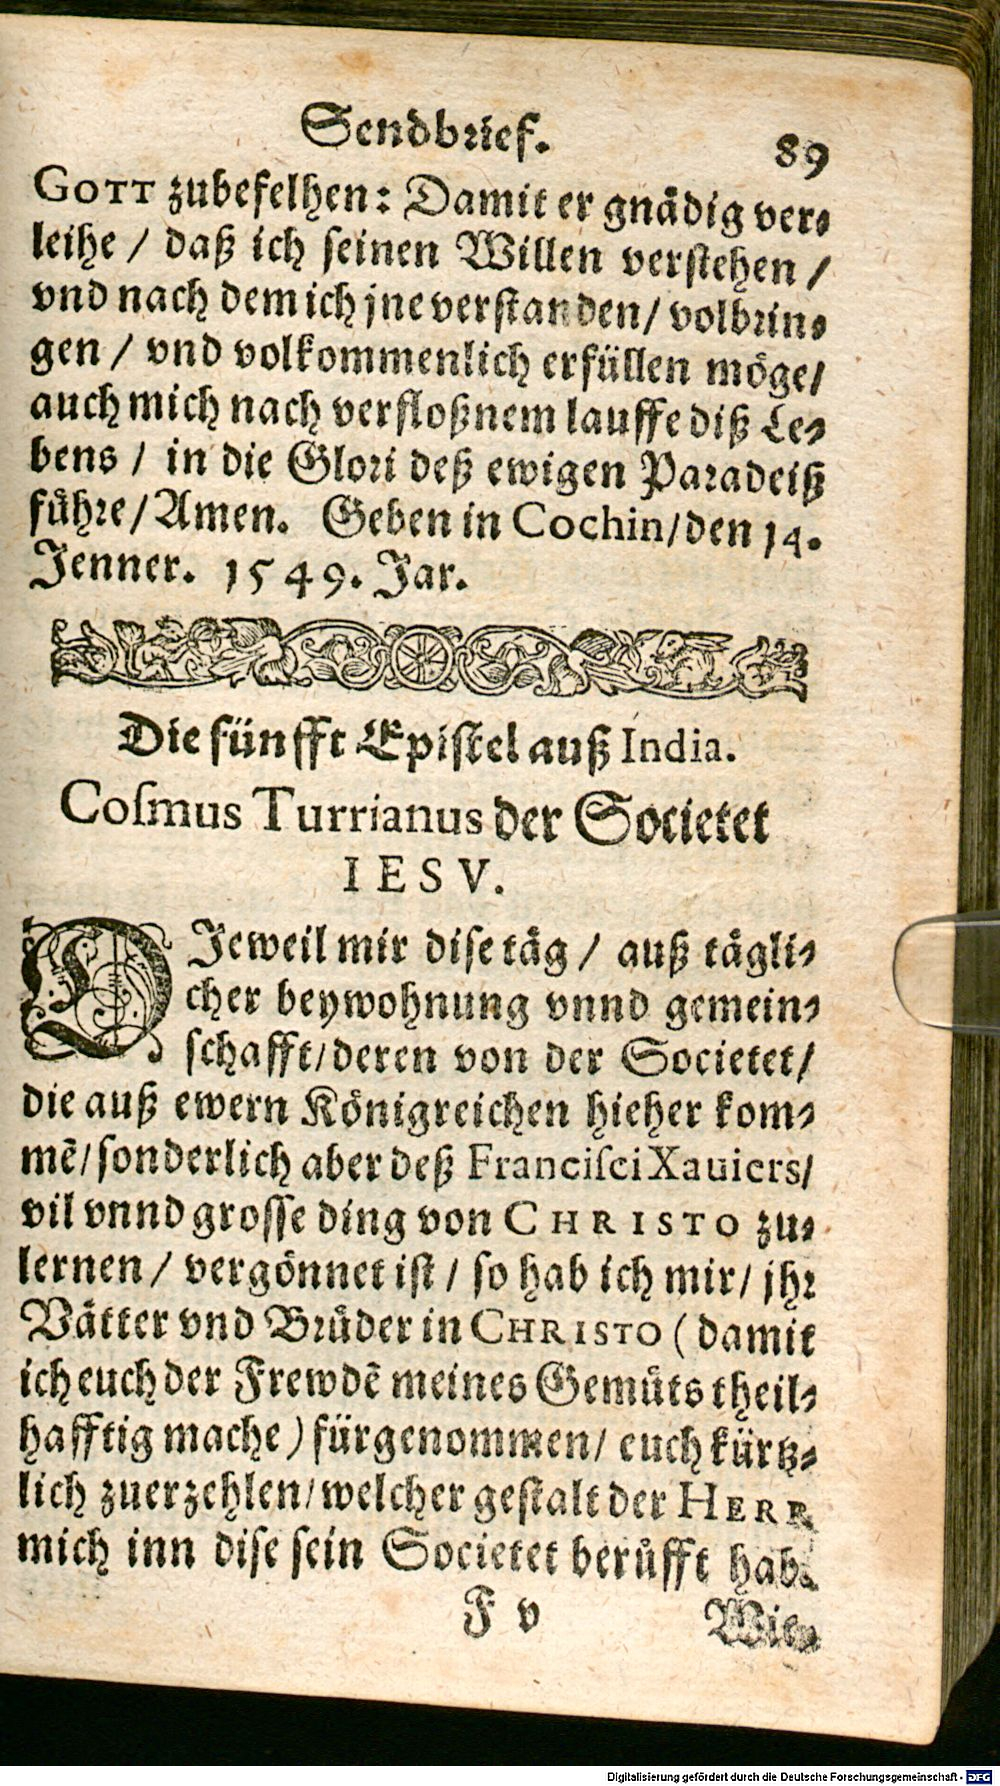 Sendbrief. 89
GOTT zubefelhen: Damit er gnädig ver⸗
leihe / daß ich seinen Willen verstehen /
vnd nach dem ich jne verstanden / volbrin⸗
gen / vnd volkommenlich erfüllen möge /
auch mich nach verfloßnem lauffe diß Le⸗
bens / in die Glori deß ewigen Paradeiß
führe / Amen. Geben in Cochin / den 14.
Jenner. 1549. Jar.
Die fünfft Epistel auß India.
Coſmus Turrianus der Societet
IESV.
DJeweil mir dise täg / auß tägli⸗
cher beywohnung vnnd gemein⸗
schafft / deren von der Societet /
die auß ewern Königreichen hieher kom⸗
mẽ / sonderlich aber deß Franciſci Xauiers /
vil vnnd grosse ding von CHRISTO zu⸗
lernen / vergönnet ist / so hab ich mir / jhr
Vätter vnd Brůder in CHRISTO ( damit
ich euch der Frewdẽ meines Gemůts theil⸗
hafftig mache ) fürgenommen / euch kürtz⸗
lich zuerzehlen / welcher gestalt der HERR
mich inn dise sein Societet berůfft hab.
F v Wie⸗
Digitalisierung gefördert durch die Deutsche Forschungsgemeinschaft - DFG